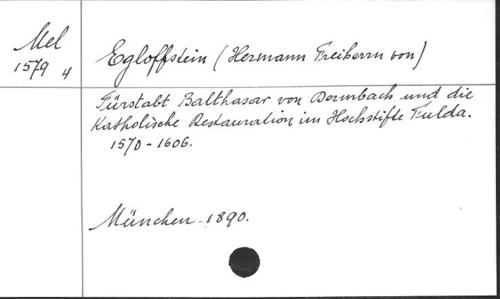 Mel
1579 4
Egloffstein (Hermann Freiherrn von)
Fürstabt Balthasar von Dermbach und die
Katholische Restauration im Hochstifte Fulda.
1570-1606.
München 1890.